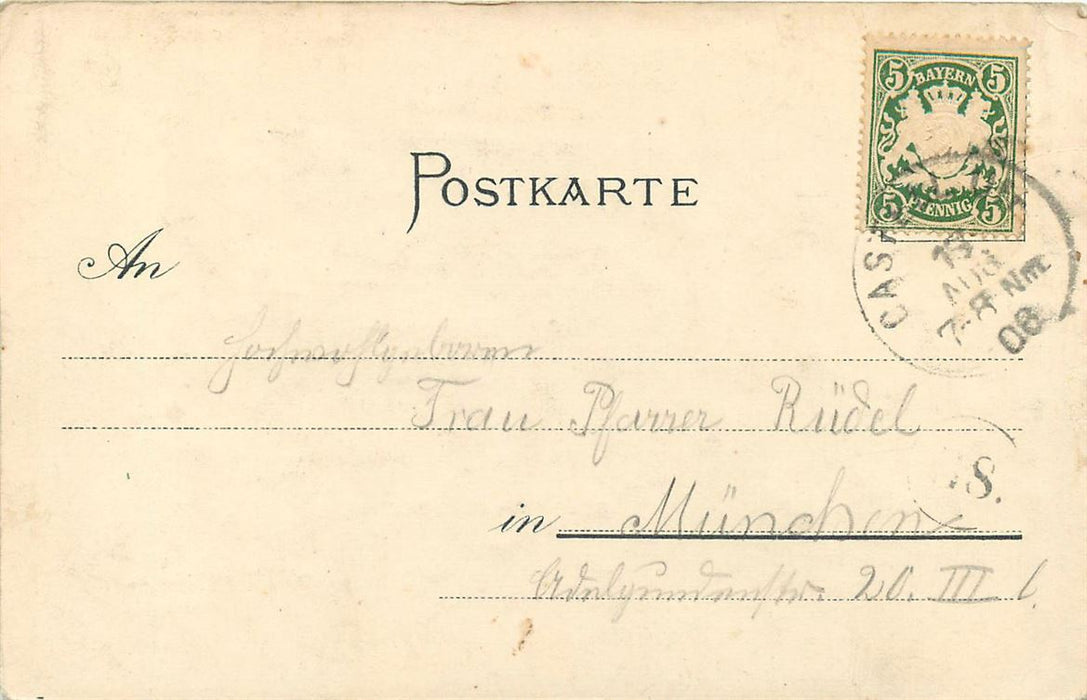 5 BAYERN 5
5 PFENNIG 5
POSTKARTE
An
CAS
13
AUG
7-8 Nm
06
Hochwohlgeboren
Frau Pfarrer Rüdel
S.
in München
Adelgundenstr. 20. III l.